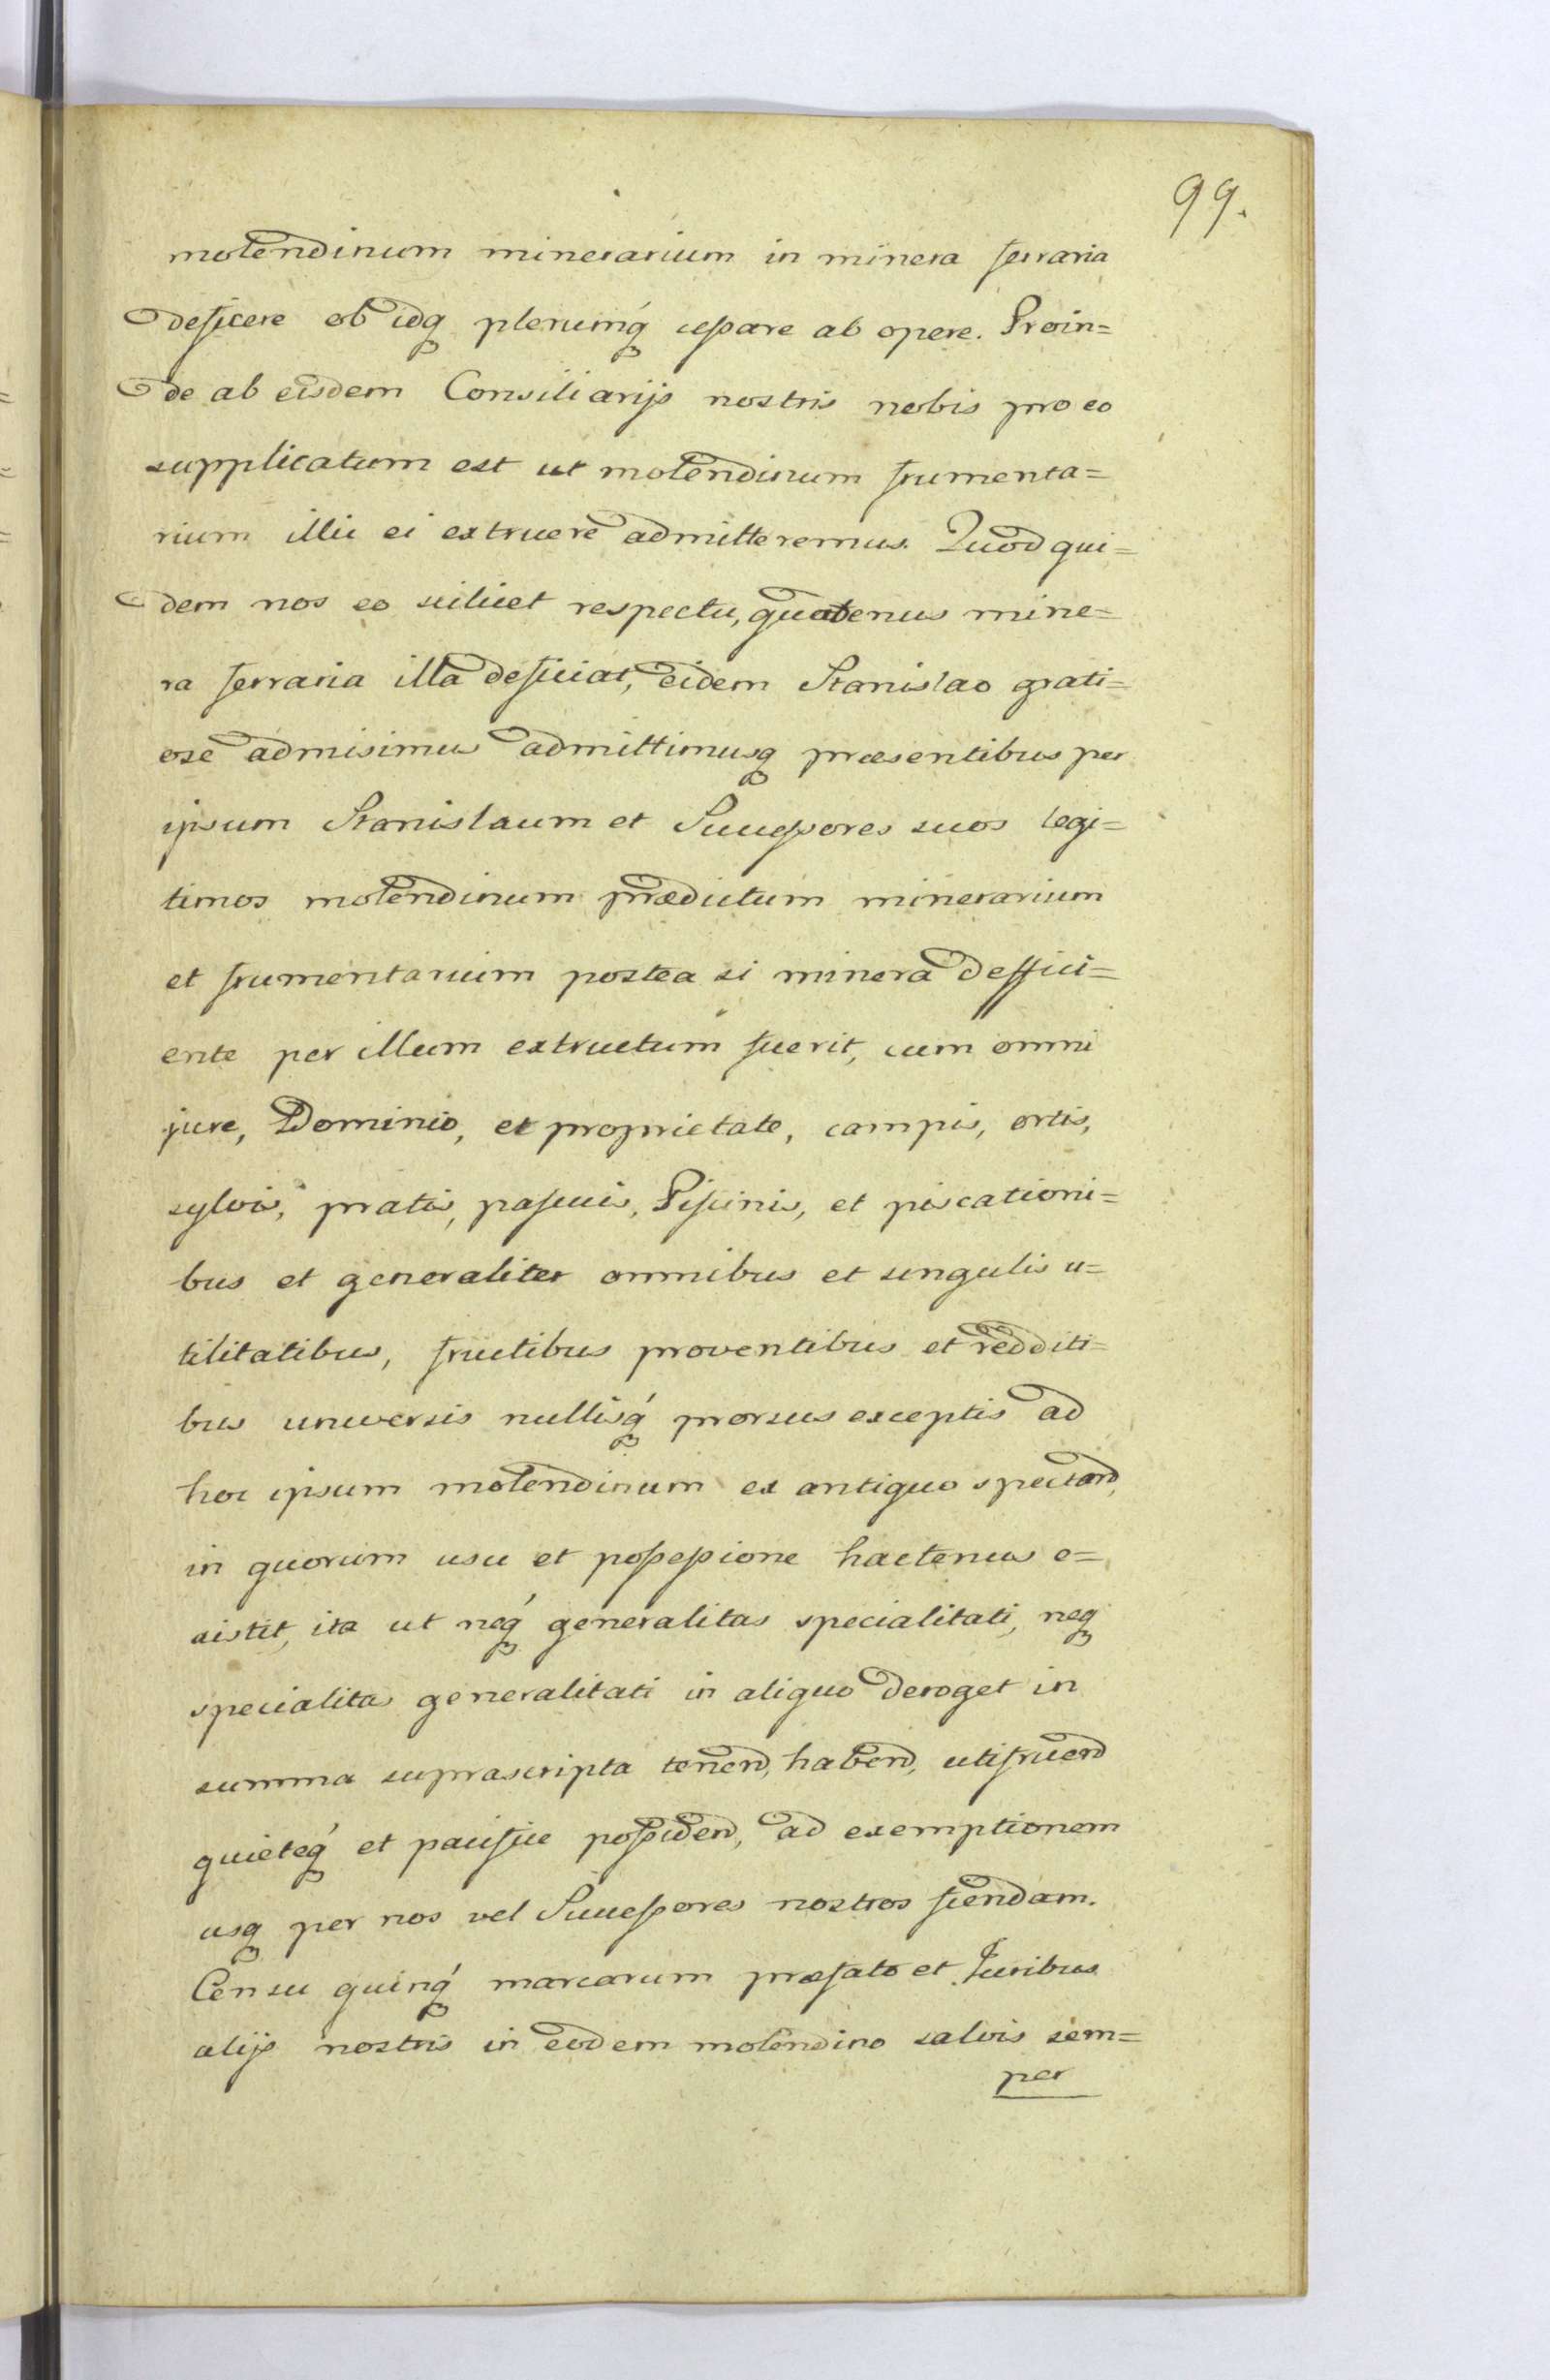 99.
molendinum minerarium in minera ferraria
deficere ob idq plerumq́ cessare ab opere. Proin=
de ab eisdem Consiliarijs nostris nobis pro eo
supplicatum est ut molendinum frumenta=
rium illic ei extruere admitteremus. Quod qui=
dem nos eo scilicet respectu, quatenus mine=
ra ferraria illa deficiat, eidem Stanislao grati=
ose admisimus admittimusq præsentibus per
ipsum Stanislaum et Successores suos legi=
timos molendinum prædictum minerarium
et frumentarium postea si minera deffici=
ente per illum extructum fuerit, cum omni
jure, Dominio, et proprietate, campis, ortis,
sylvis, pratis, pascuis, Piscinis, et piscationi=
bus et generaliter omnibus et singulis u=
tilitatibus, fructibus proventibus et redditi=
bus universis nullisq́ prorsus exceptis ad
hoc ipsum molendinum ex antiquo spectand,
in quorum usu et possessione hactenus e=
xistit, ita ut neq́ generalitas specialitati, neq
specialitas generalitati in aliquo deroget in
summa suprascripta tenend, habend, utifruend
quieteq́ et pacifice possidend, ad exemptionem
usq per nos vel Successores nostros fiendam.
Censu quinq́ marcarum præfato et Juribus
alijs nostris in eodem molendino salvis sem=
per